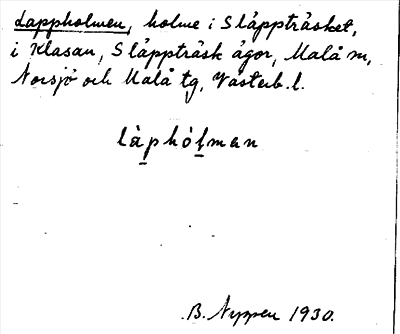 Lappholmen, holme i Släppträsket,
i Klasan, Släppträsk ägor, Malå sn,
Norsjö och Malå tg, Västerb. l.
làp̱hóḻmen
B. Nyppen 1930.